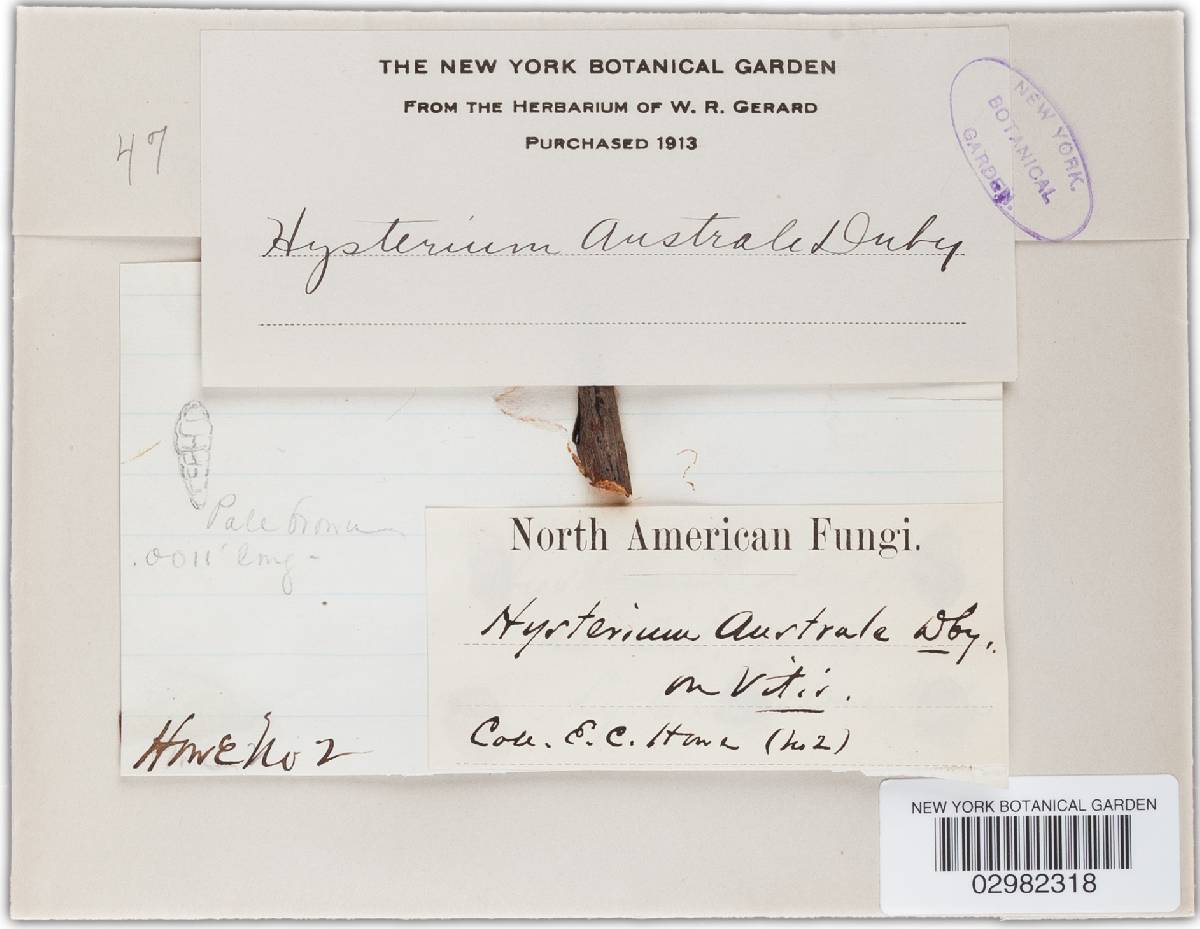 THE NEW YORK BOTANICAL GARDEN
FROM THE HERBARIUM OF W. R. GERARD
PURCHASED 1913
NEW YORK
BOTANICAL
GARDEN.
47
Hysterium Australe Duby
?
Pale brown
.0011" long-
North American Fungi.
Hysterium Australe Dby.
on Vitis.
Coll. E. C. Howe (No 2)
Howe No 2
NEW YORK BOTANICAL GARDEN
02982318